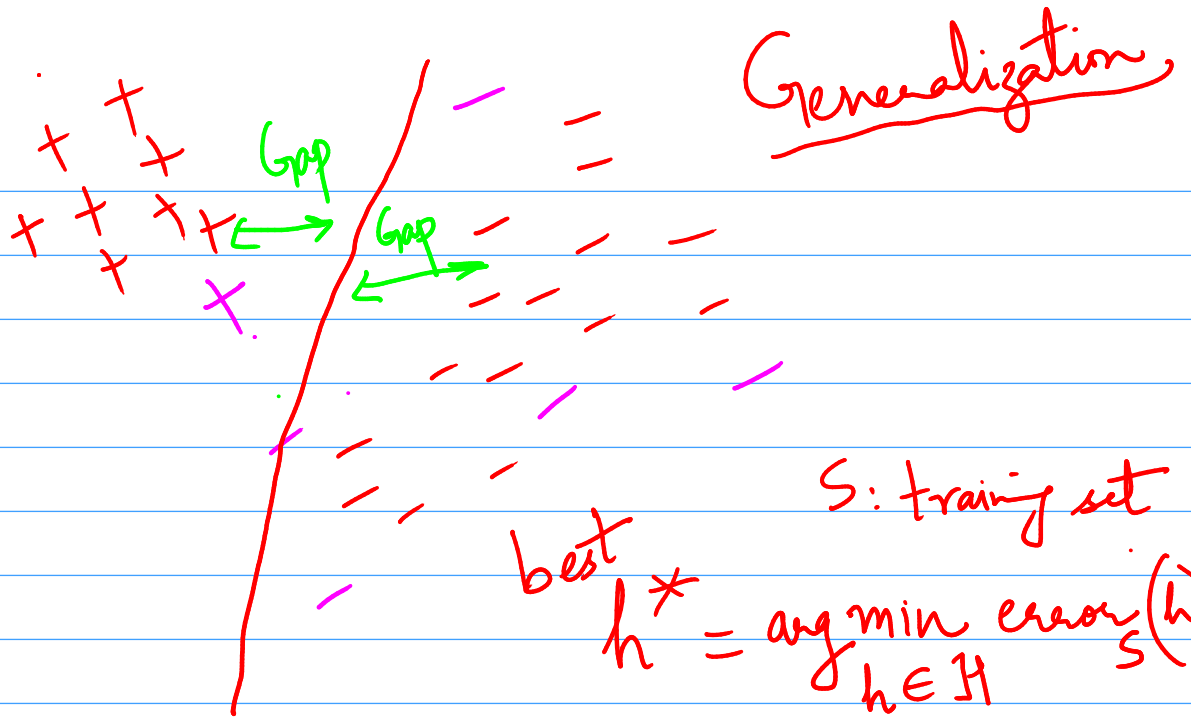 Generalization
Gap
Gap
S: training set
best
h* = argmin error_S(h
h ∈ H